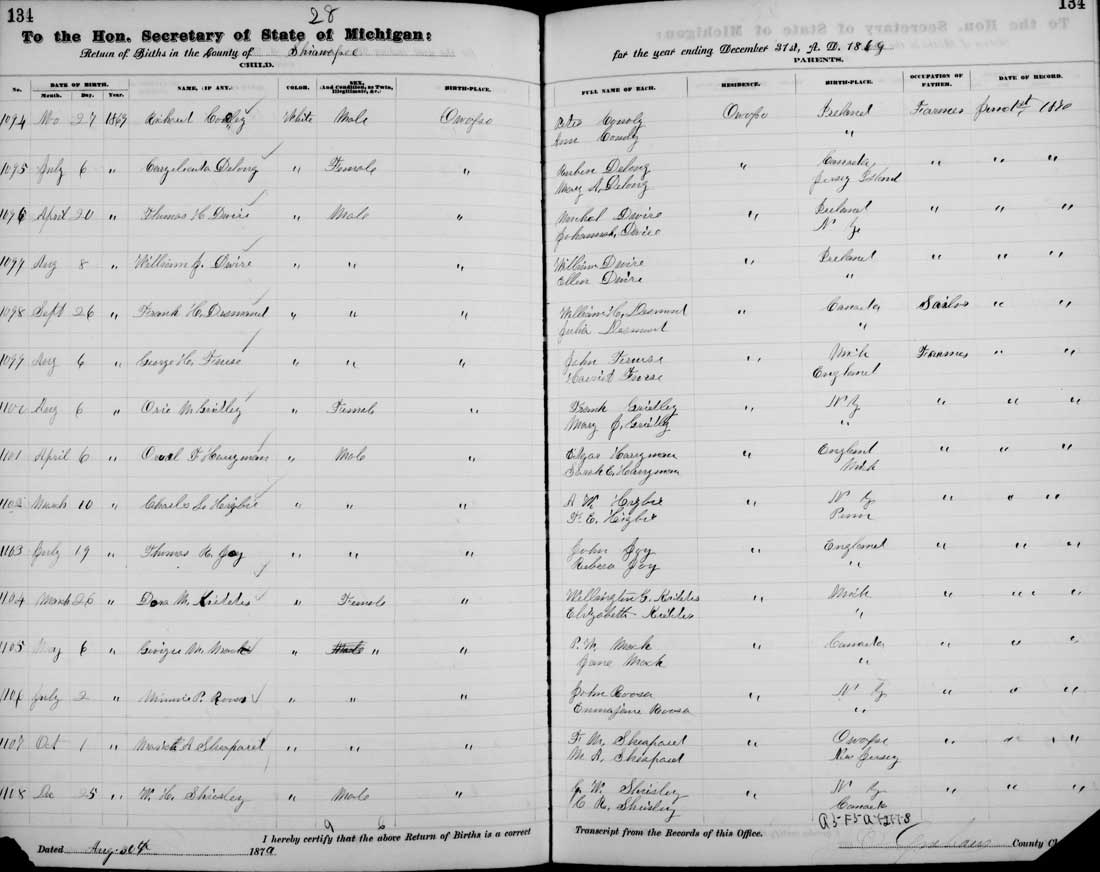 134
28
134
To the Hon. Secretary of State of Michigan:
Return of Births in the County of Shiawassee for the year ending December 31st, A. D. 1869
CHILD. PARENTS.
No. DATE OF BIRTH. Month. Day. Year. NAME, (IF ANY.) COLOR. SEX, (And Condition, as Twin, Illegitimate, &c.) BIRTH-PLACE. FULL NAME OF EACH. RESIDENCE. BIRTH-PLACE. OCCUPATION OF FATHER. DATE OF RECORD.
1094 27 1869 White Male Owosso Owosso Ireland Farmer June 1st 1870
Ann "
1095 July 6 " Delong " Female " Ruben Delong " Canada " " "
Mary A. Delong Jersey Island
1096 April 20 " Thomas H. Dwire " Male " Michel Dwire " Ireland " " "
Johannah Dwire N Y
1097 Aug 8 " William J. Dwire " " " William Dwire " Ireland " " "
Ellen Dwire "
1098 Sept 26 " Frank H. Desmond " " " William H. Desmond " Canada Sailor " "
Julia Desmond "
1099 Aug 6 " George H. " " " John " Mich Farmer " "
Harriet England
1100 Aug 6 " Orie M. Gridley " Female " Frank Gridley " N Y " " "
Mary J. Gridley "
1101 April 6 " F. Harryman " Male " Edgar Harryman " England " " "
Sarah E. Harryman Mich
1102 March 10 " Charles L. Higbie " " " A. W. Higbie " N Y " " "
F. E. Higbie Penn
1103 July 19 " Thomas R. Joy " " " John Joy " England " " "
Rebeca Joy "
1104 March 26 " Dora M. " Female " Wellington G. " Mich " " "
Elizabeth "
1105 May 6 " M. Mack " " " P. W. Mack " Canada " " "
Jane Mack "
1106 July 2 " Minnie P. Roosa " " " John Roosa " N Y " " "
Emma Jane Roosa "
1107 Oct 1 " A Sheapard " " " F. M. Sheapard " Owosso " " "
M. A. Sheapard New Jersey
1108 Dec 25 " W. H. Shirley " Male " G. W. Shirley " N Y " " "
C. R. Shirley Canada
9 6
I hereby certify that the above Return of Births is a correct Transcript from the Records of this Office.
Dated Aug. 1870
County Cl